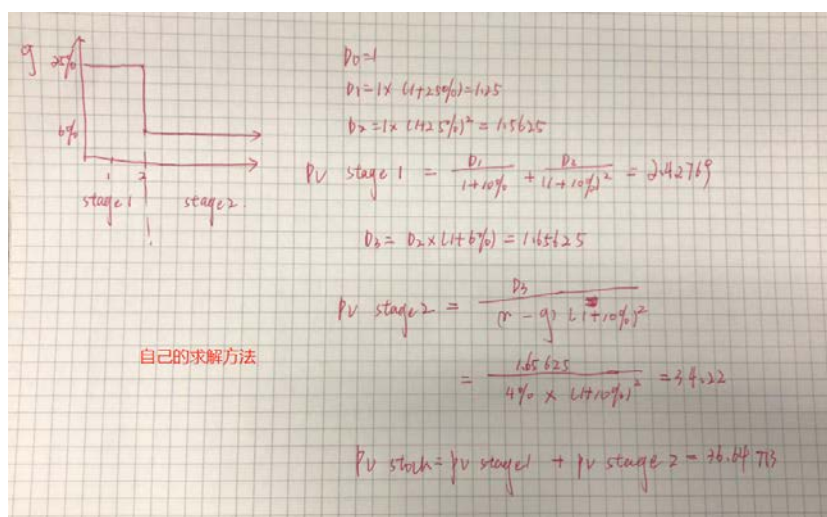 g
25%
6%
1 2
stage 1 stage 2.
D0=1
D1=1×(1+25%)=1.25
D2=1×(1+25%)² = 1.5625
PV stage 1 = D1/(1+10%) + D2/(1+10%)² = 2.42769
D3= D2×(1+6%) = 1.65625
PV stage 2 = D3/((r-g)(1+10%)²)
= 1.65625/(4% × (1+10%)²) = 34.22
自己的求解方法
PV stock = PV stage 1 + PV stage 2 =